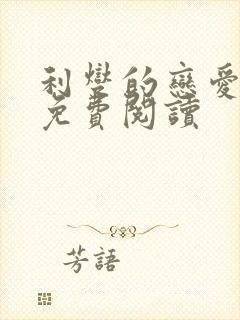 利巒的戀愛
免費閱讀
芳語